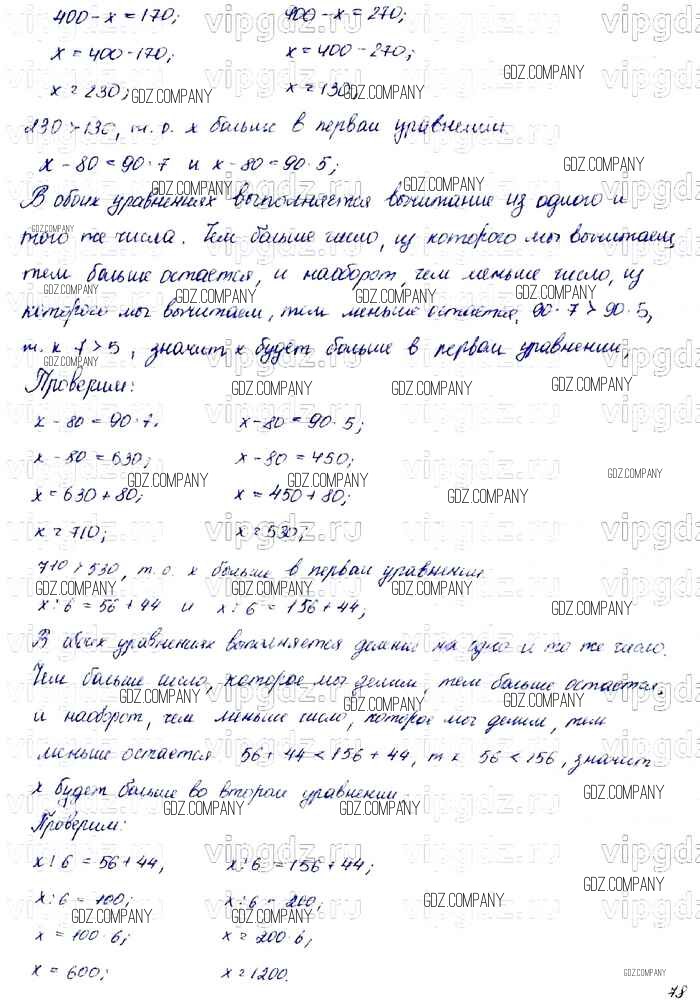 400-x=170; 400-x=270;
x=400-170; x=400-270;
x=230; x=130;
230>130, т.о. x больше в первом уравнении.
x-80=90·7 и x-80=90·5;
В обоих уравнениях выполняется вычитание из одного и
того же числа. Чем больше число, из которого мы вычитаем,
тем больше остается, и наоборот, чем меньше число, из
которого мы вычитаем, тем меньше остается, 90·7>90·5,
т.к 7>5, значит x будет больше в первом уравнении,
Проверим:
x-80=90·7. x-80=90·5;
x-80=630; x-80=450;
x=630+80; x=450+80;
x=710; x=530;
710>530, т.о. x больше в первом уравнении
x:6=56+44 и x:6=156+44;
В обоих уравнениях выполняется деление на одно и то же число.
Чем больше число, которое мы делим, тем больше остается,
и наоборот, чем меньше число, которое мы делим, тем
меньше остается 56+44<156+44, т.к 56<156, значит
x будет больше во втором уравнении.
Проверим:
x:6=56+44, x:6=156+44;
x:6=100; x:6=200,
x=100·6; x=200·6,
x=600; x=1200.
78
vipgdz.ru
GDZ.COMPANY